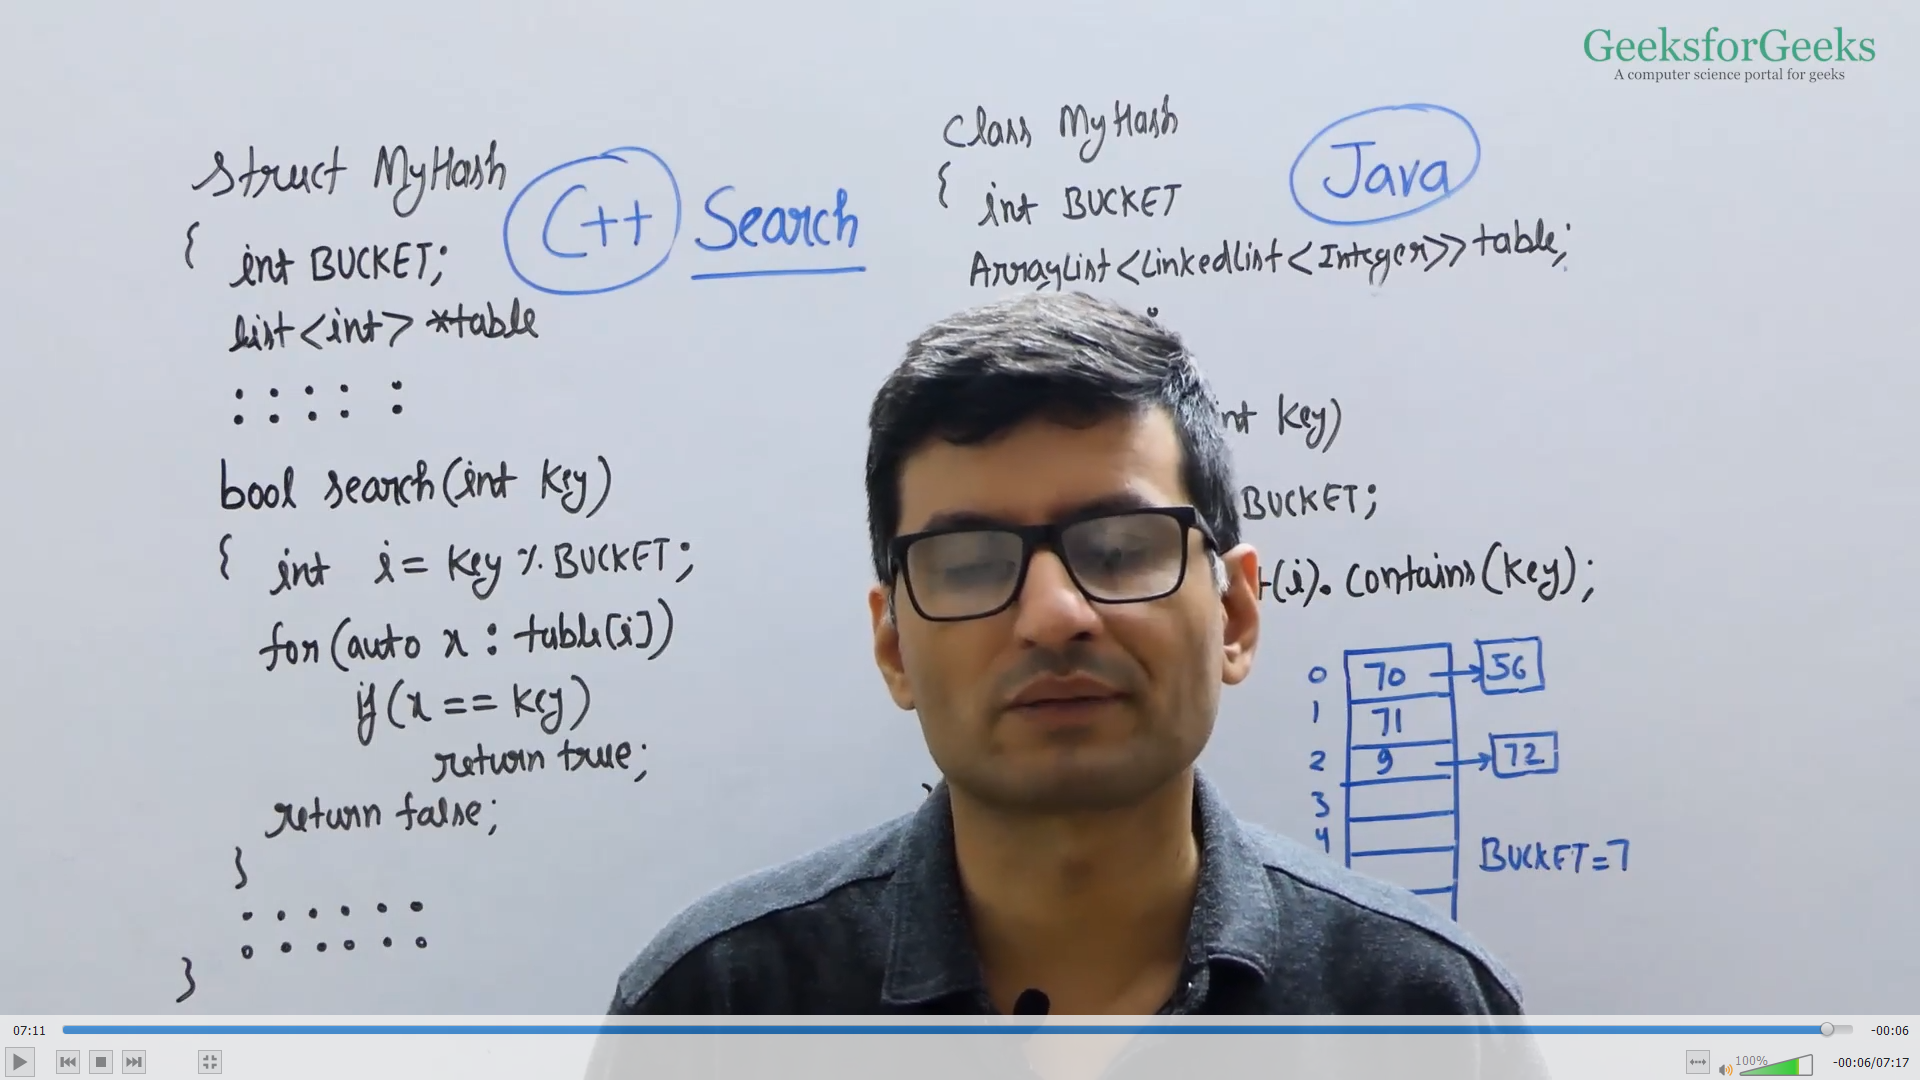 GeeksforGeeks
A computer science portal for geeks
struct MyHash
{ int BUCKET;
list<int> *table
C++
Search
bool search(int key)
{ int i = key % BUCKET;
for(auto x : table[i])
if(x == key)
return true;
return false;
}
}
Class MyHash
Java
{ int BUCKET
ArrayList<LinkedList<Integer>> table;
int key)
BUCKET;
t(i). contains(key);
0 70 56
1 71
2 9 72
3
4
BUCKET=7
07:11
-00:06
100%
-00:06/07:17